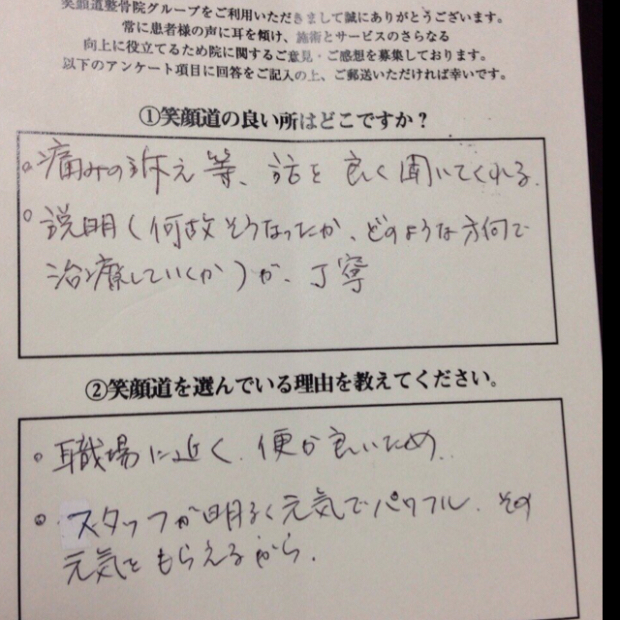 笑顔道整骨院グループをご利用いただきまして誠にありがとうございます。
常に患者様の声に耳を傾け、施術とサービスのさらなる
向上に役立てるため院に関するご意見・ご感想を募集しております。
以下のアンケート項目に回答をご記入の上、ご郵送いただければ幸いです。
①笑顔道の良い所はどこですか？
○痛みの訴え等、話を良く聞いてくれる。
○説明（何故そうなったか、どのような方向で
治療していくか）が、丁寧
②笑顔道を選んでいる理由を教えてください。
○職場に近く、便が良いため。
○スタッフが明るく元気でパワフル。その
元気をもらえるから。